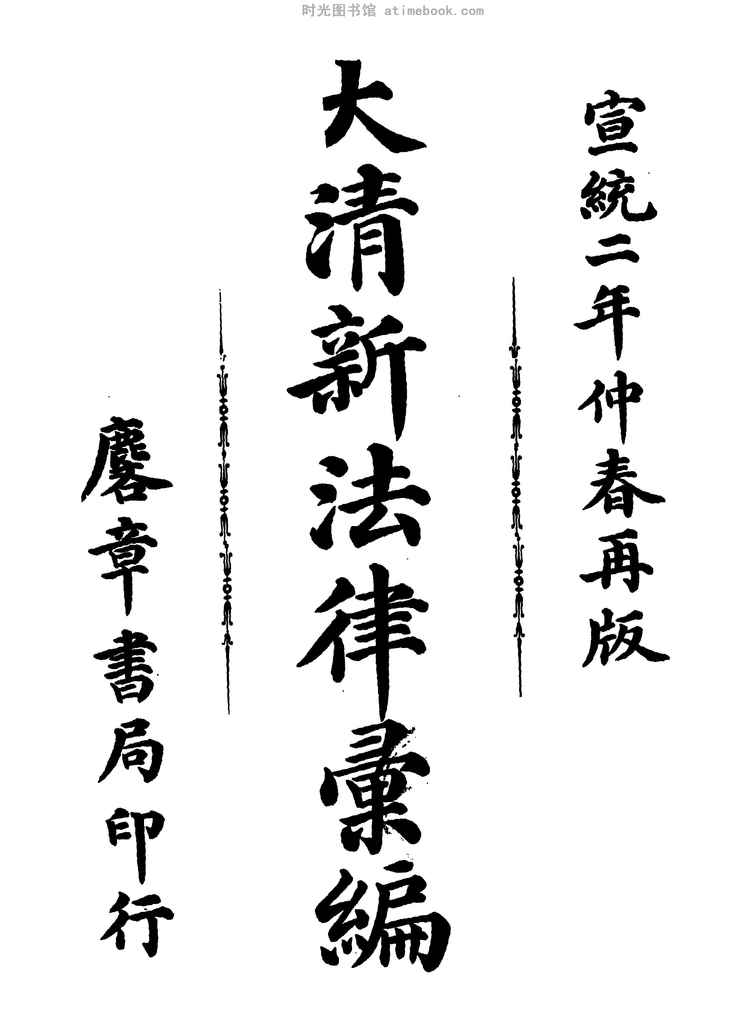 时光图书馆 atimebook.com
宣統二年仲春再版
大清新法律彙編
麐章書局印行